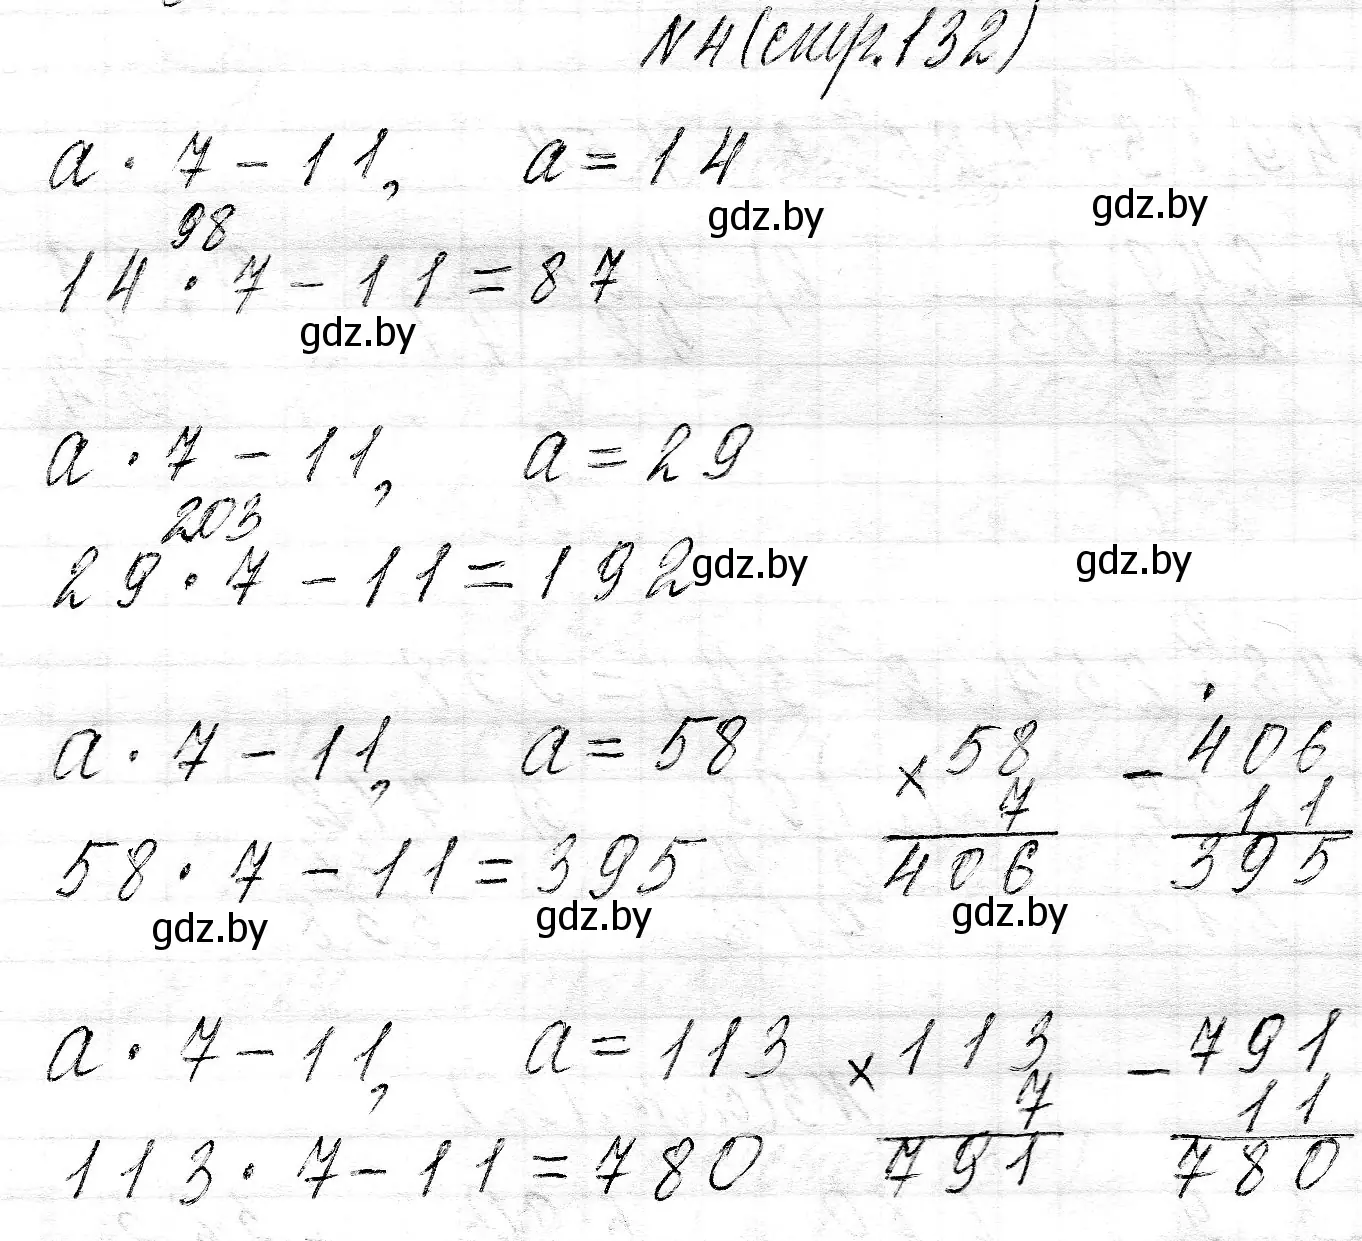 N4 (стр. 132)
a · 7 - 11, a = 14
gdz.by gdz.by
98
14 · 7 - 11 = 87
gdz.by
a · 7 - 11, a = 29
203
29 · 7 - 11 = 192
gdz.by gdz.by
a · 7 - 11, a = 58 × 58 - 406
7 11
58 · 7 - 11 = 395 406 395
gdz.by gdz.by gdz.by
a · 7 - 11, a = 113 × 113 - 791
7 11
113 · 7 - 11 = 780 791 780